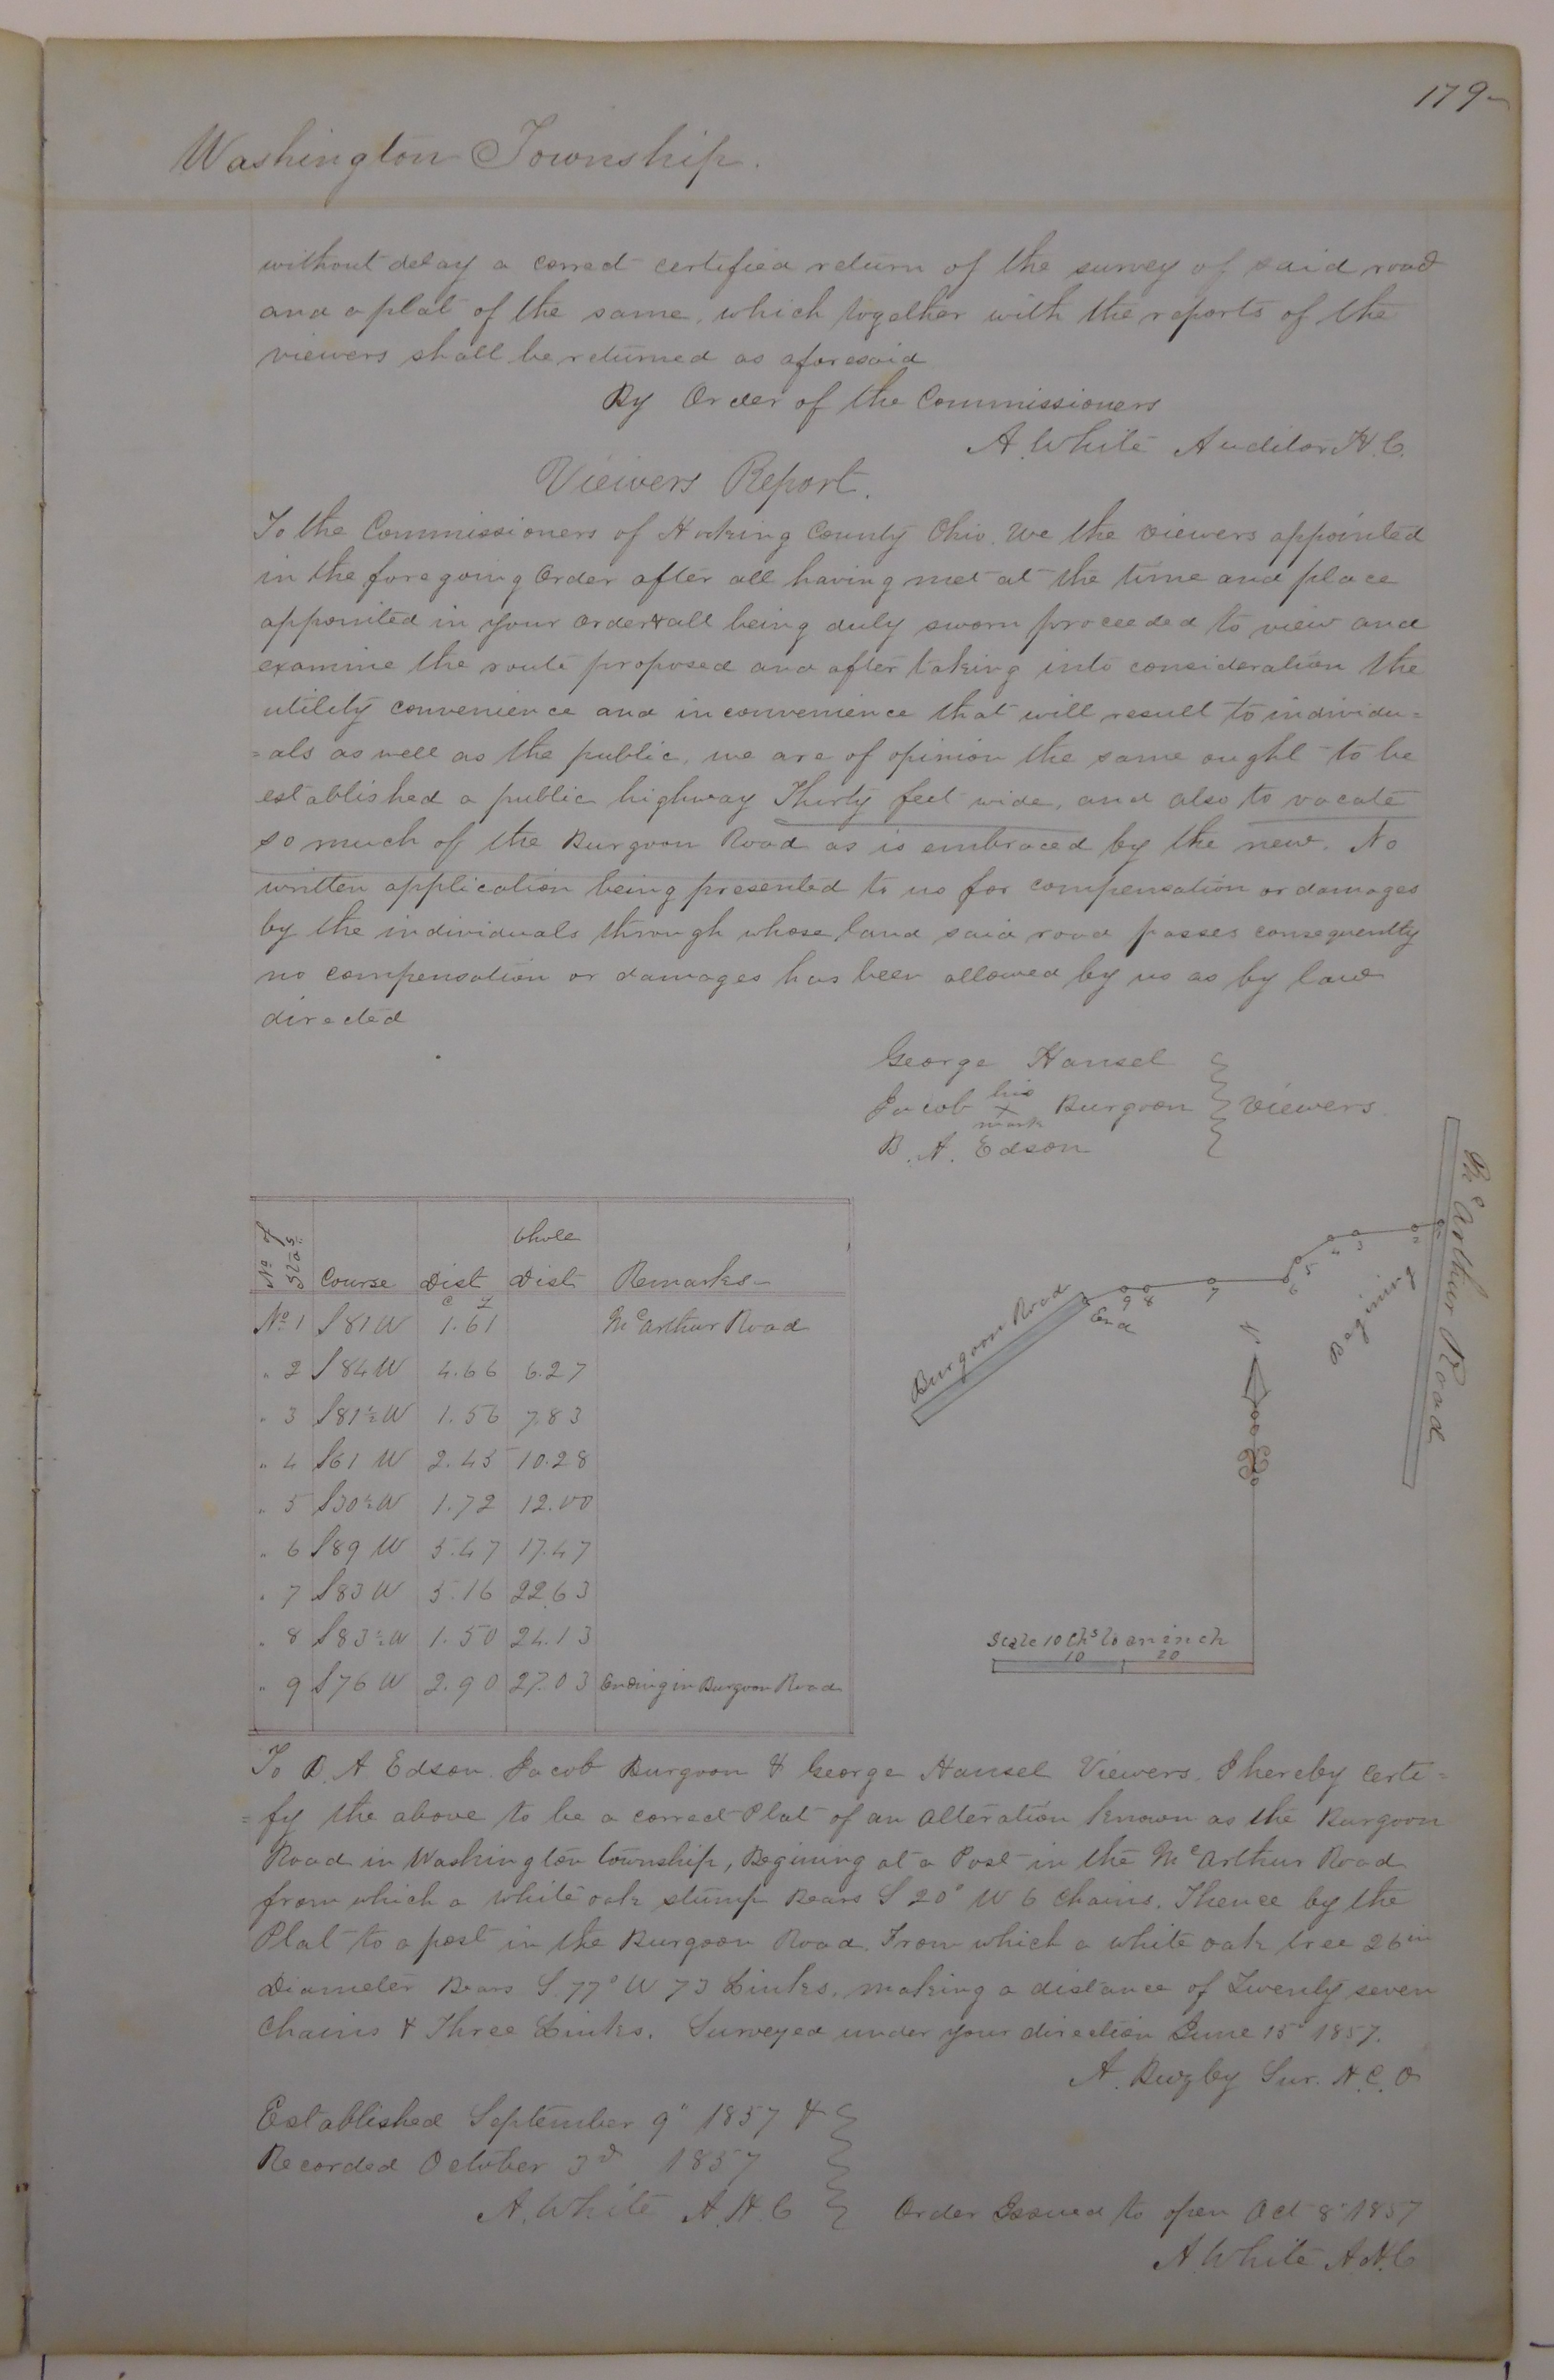 179
Washington Township.
without delay a correct certified return of the survey of said road
and a plat of the same, which together with the reports of the
viewers shall be returned as aforesaid
By Order of the Commissioners
A. White Auditor H. C.
Viewers Report.
To the Commissioners of Hocking County Ohio. We the viewers appointed
in the foregoing Order after all having met at the time and place
appointed in your order & all being duly sworn proceeded to view and
examine the route proposed and after taking into consideration the
utility convenience and inconvenience that will result to individu=
=als as well as the public, we are of opinion the same ought to be
established a public highway Thirty feet wide, and also to vacate
so much of the Burgoon Road as is embraced by the new. No
written application being presented to us for compensation or damages
by the individuals through whose land said road passes consequently
no compensation or damages has been allowed by us as by law
directed
George Hansel
Jacob his X mark Burgoon Viewers
B. A. Edson
No of Stas. Course Dist Whole Dist Remarks
C L
No 1 S 81 W 1.61 McArthur Road
" 2 S 84 W 4.66 6.27
" 3 S 81½ W 1.56 7.83
" 4 S 61 W 2.45 10.28
" 5 S 30½ W 1.72 12.00
" 6 S 89 W 5.47 17.47
" 7 S 83 W 5.16 22.63
" 8 S 83½ W 1.50 24.13
" 9 S 76 W 2.90 27.03 Ending in Burgoon Road
McArthur Road
Begining
2
3
4
5
6
7
8
9
End
Burgoon Road
N
Scale 10 Chs to an inch
10 20
To B. A Edson. Jacob Burgoon & George Hansel Viewers. I hereby certi=
=fy the above to be a correct Plat of an Alteration known as the Burgoon
Road in Washington township, Begining at a Post in the McArthur Road
from which a white oak stump Bears S 20° W 6 Chains. Thence by the
Plat to a post in the Burgoon Road. From which a white oak tree 26 in
Diameter Bears S. 77° W 73 Links, making a distance of Twenty seven
Chains & Three Links. Surveyed under your direction June 15 1857.
A. Sur. H. C. O
Established September 9" 1857 &
Recorded October 3d 1857
A. White A. H. C
Order Issued to open Oct 8" 1857
A. White A. H. C